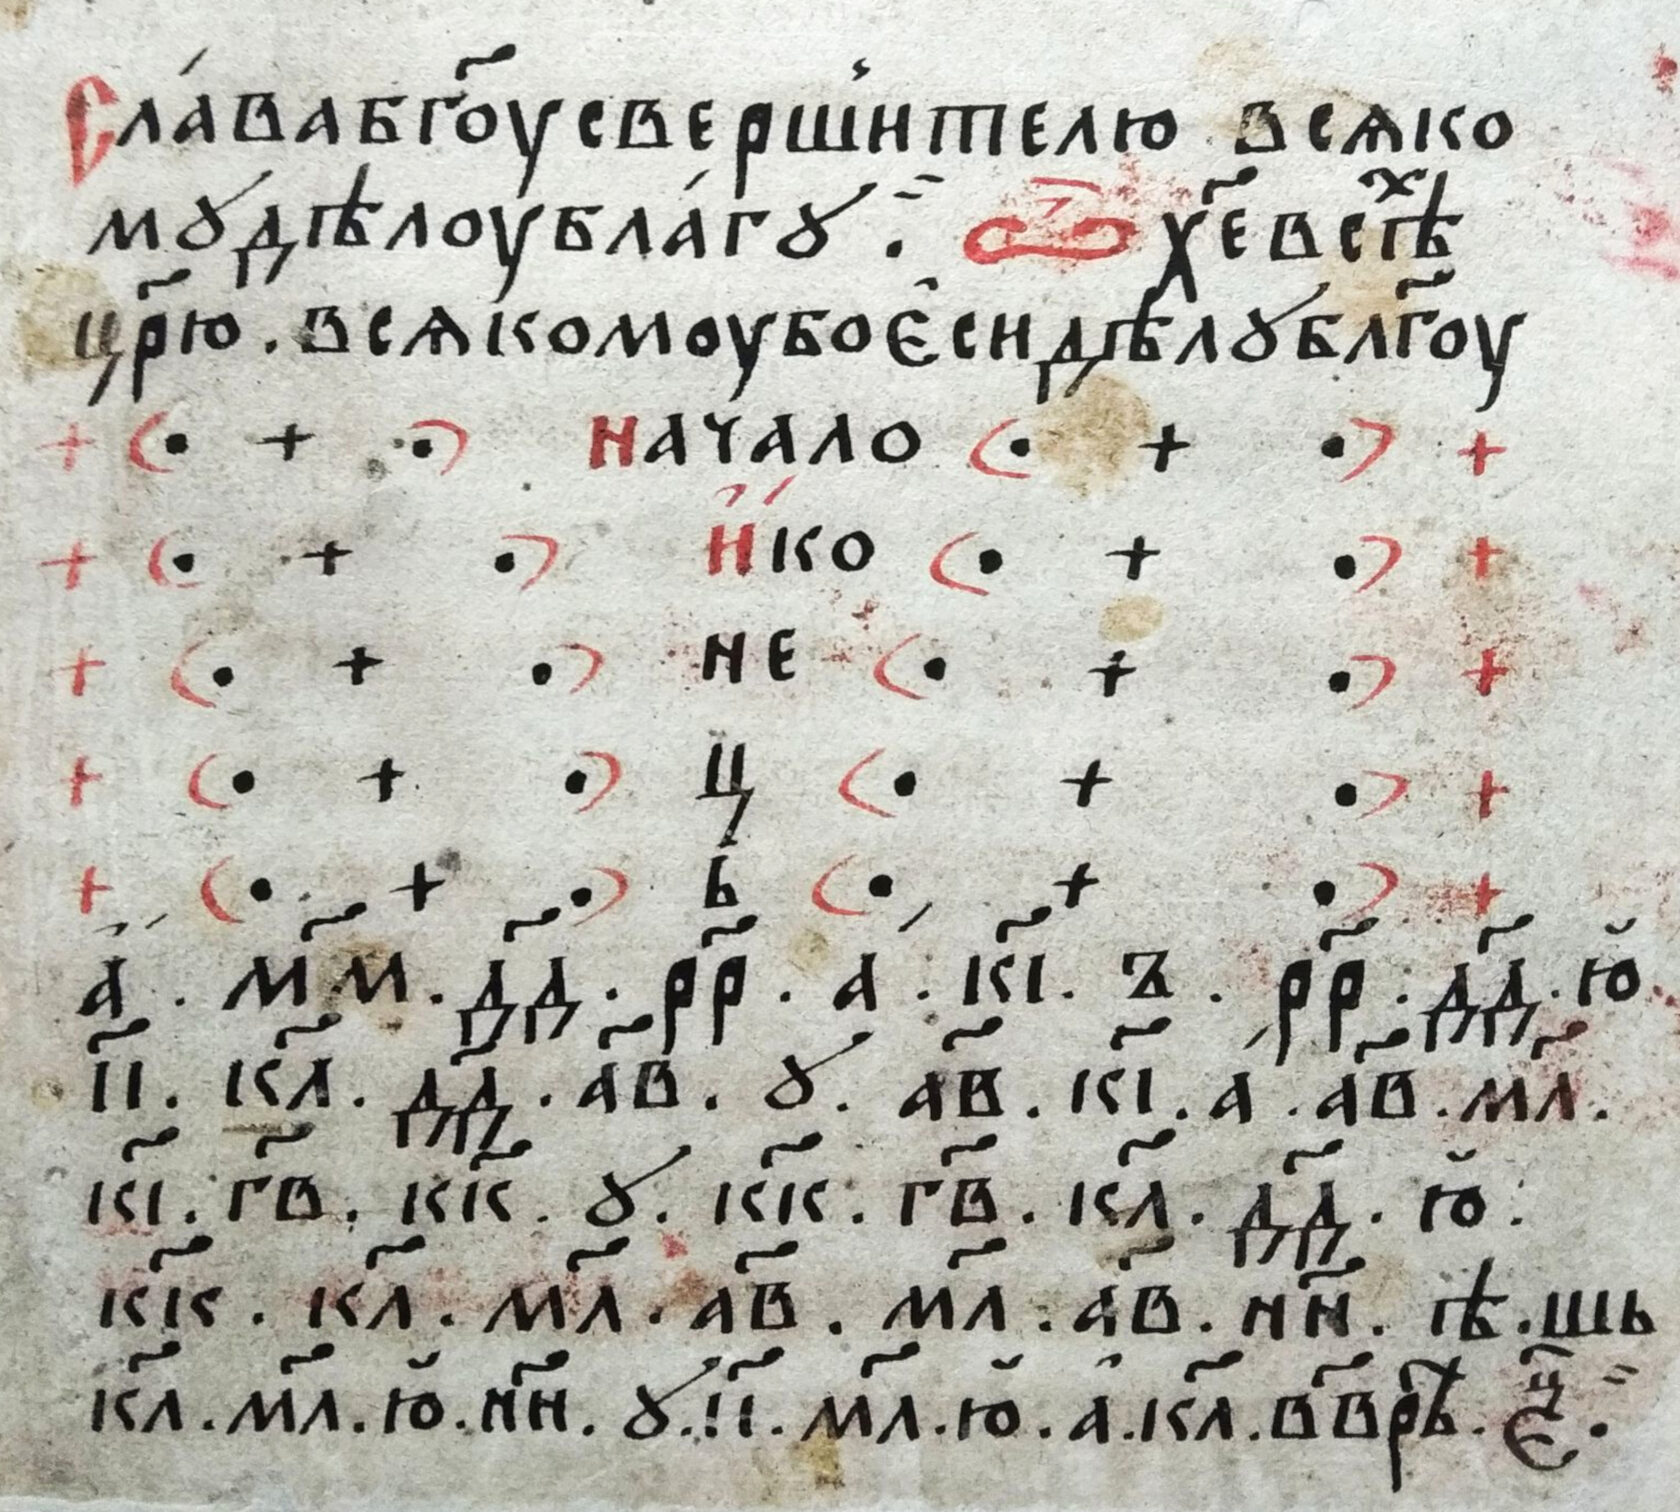 Сла́ва бг҃оу сверши́телю всѧко
мꙋ дѣлоу бла́гꙋ. х҃е всⷯѣ
цр҃ю. всѧкомоу бо є̑си дѣлꙋ бл҃гоу
+ (• + •) Начало (• + •) +
+ (• + •) И҆́ко (• + •) +
+ (• + •) не (• + •) +
+ (• + •) ц (• + •) +
+ (• + •) ь (• + •) +
а҆́. м҃м. д҃д. р҃р. а́. к҃і. ъ. р҃р. д҃д. ю̆
і҃і. к҃л. д҃д. а҃в. ꙋ. а҃в. к҃і. а́. а҃в. м҃л.
к҃і. г҃в. к҃к. ꙋ. к҃к. г҃в. к҃л. д҃д. ю̆.
к҃к. к҃л. м҃л. а҃в. м҃л. а҃в. н҃н. ѣ. шь
к҃л. м҃л. ю̆. н҃н. ꙋ. і҃і. м҃л. ю̆. а̑. к҃л. в҃в р҃ѣ. є҃ц.